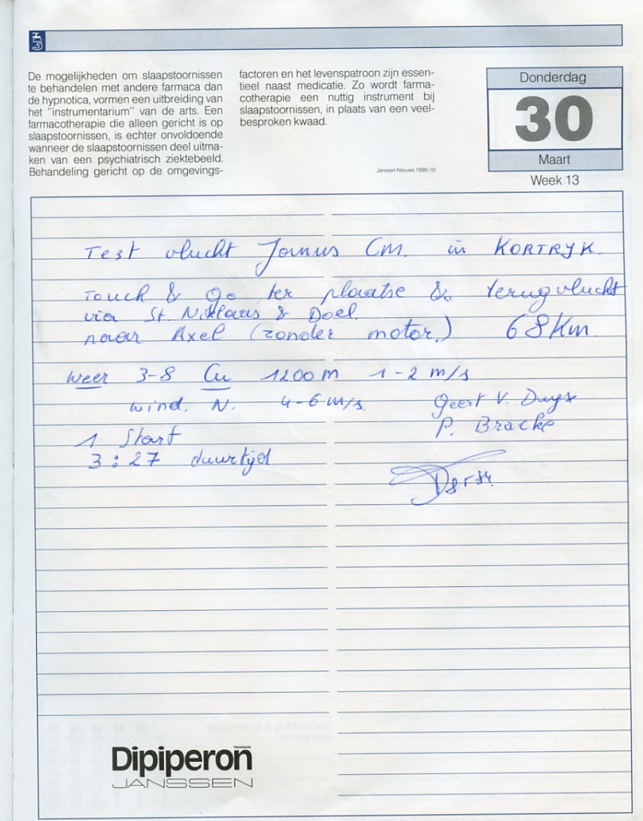 De mogelijkheden om slaapstoornissen
te behandelen met andere farmaca dan
de hypnotica, vormen een uitbreiding van
het "instrumentarium" van de arts. Een
farmacotherapie die alleen gericht is op
slaapstoornissen, is echter onvoldoende
wanneer de slaapstoornissen deel uitma-
ken van een psychiatrisch ziektebeeld.
Behandeling gericht op de omgevings-
factoren en het levenspatroon zijn essen-
tieel naast medicatie. Zo wordt farma-
cotherapie een nuttig instrument bij
slaapstoornissen, in plaats van een veel-
besproken kwaad.
Janssen Nieuws 1990-10
Donderdag
30
Maart
Week 13
Test vlucht Janus CM. in KORTRYK.
Touch & go ter plaatse & terugvlucht
via St. Niklaas & Doel.
naar Axel (zonder motor.) 68Km
weer 3-8 Cu 1200m 1-2 m/s
wind. N. 4-6 m/s.
Geert V. Duyse
P. Bracke
1 Start
3:27 duurtijd
Dipiperon
JANSSEN